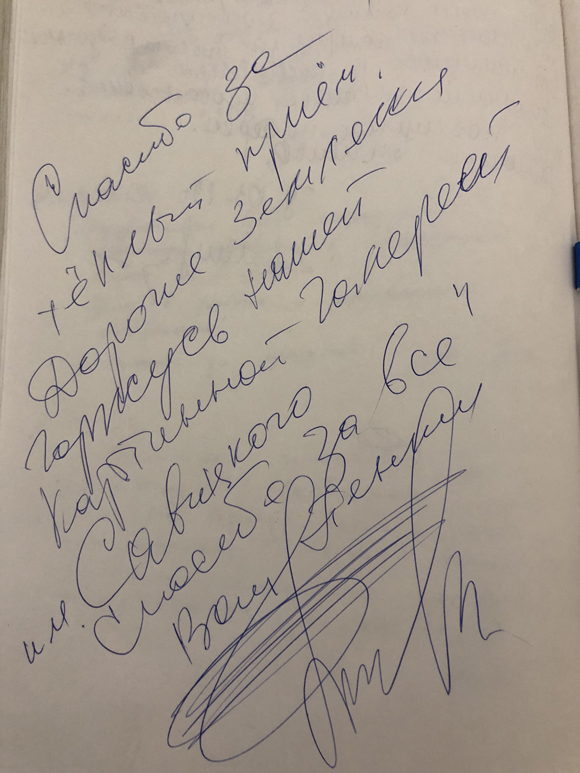 Спасибо за
тёплый приём.
Дорогие земляки
горжусь нашей
Картинной Галереей
им. Савицкого
Спасибо за все"
Ваш